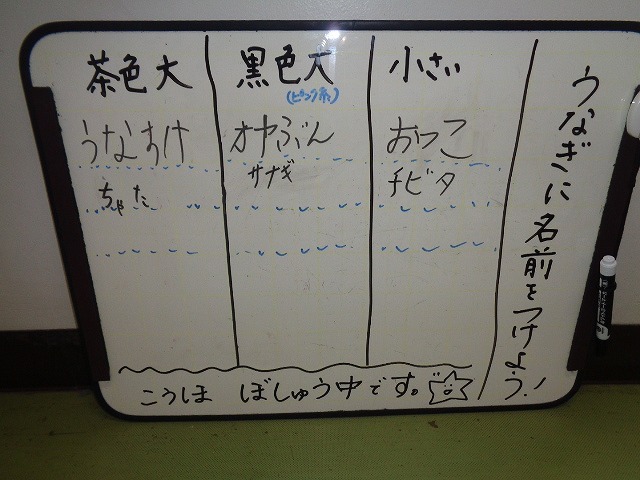 うなぎに名前をつけよう！
茶色大
うなすけ
ちゃた
黒色大
(ピンク系)
オヤぶん
サナギ
小さい
おつこ
チビタ
こうほ ぼしゅう中です。